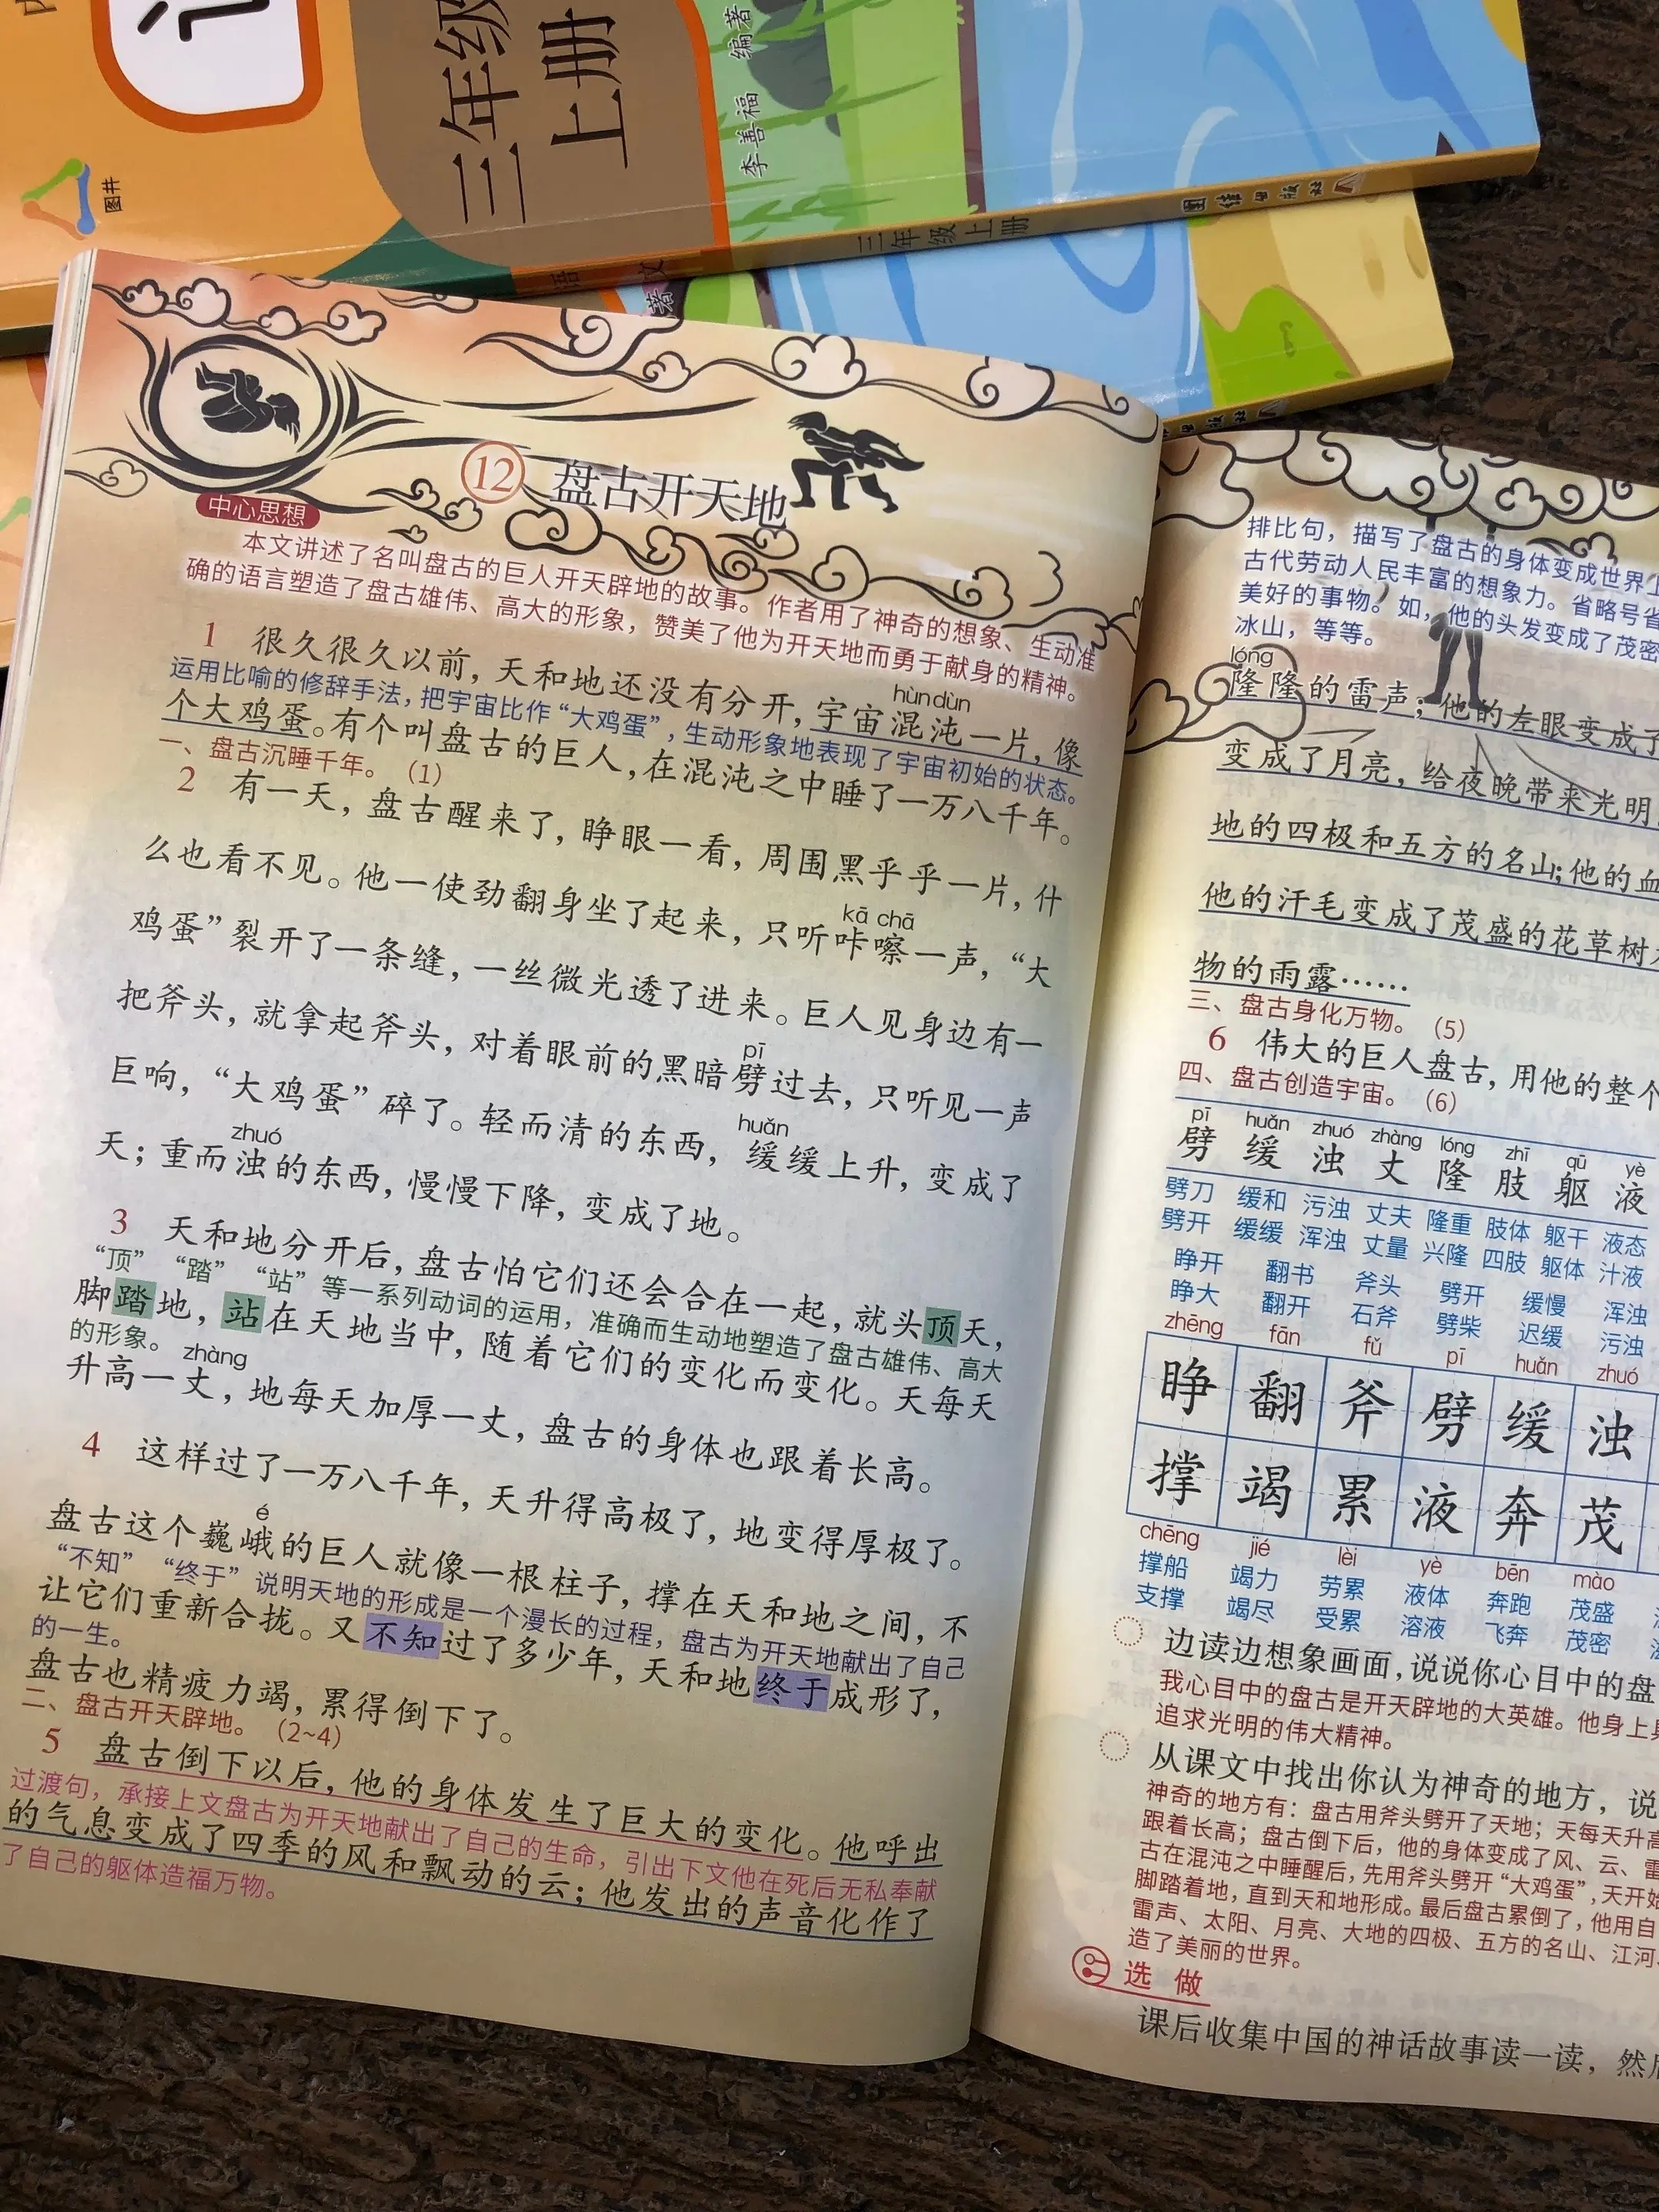 三年级
上册
李善福 编著
图井
三年级上册
团结出版社
语文
著
出版社
12 盘古开天地
中心思想
本文讲述了名叫盘古的巨人开天辟地的故事。作者用了神奇的想象、生动准
确的语言塑造了盘古雄伟、高大的形象，赞美了他为开天地而勇于献身的精神。
1 很久很久以前，天和地还没有分开，宇宙混沌一片，像
hùn dùn
运用比喻的修辞手法，把宇宙比作“大鸡蛋”，生动形象地表现了宇宙初始的状态。
个大鸡蛋。有个叫盘古的巨人，在混沌之中睡了一万八千年。
一、盘古沉睡千年。（1）
2 有一天，盘古醒来了，睁眼一看，周围黑乎乎一片，什
么也看不见。他一使劲翻身坐了起来，只听咔嚓一声，“大
kā chā
鸡蛋”裂开了一条缝，一丝微光透了进来。巨人见身边有一
把斧头，就拿起斧头，对着眼前的黑暗劈过去，只听见一声
pī
巨响，“大鸡蛋”碎了。轻而清的东西，缓缓上升，变成了
huǎn
天；重而浊的东西，慢慢下降，变成了地。
zhuó
3 天和地分开后，盘古怕它们还会合在一起，就头顶天，
“顶” “踏” “站”等一系列动词的运用，准确而生动地塑造了盘古雄伟、高大
脚踏地，站在天地当中，随着它们的变化而变化。天每天
的形象。
zhàng
升高一丈，地每天加厚一丈，盘古的身体也跟着长高。
4 这样过了一万八千年，天升得高极了，地变得厚极了。
é
盘古这个巍峨的巨人就像一根柱子，撑在天和地之间，不
“不知” “终于”说明天地的形成是一个漫长的过程，盘古为开天地献出了自己
让它们重新合拢。又不知过了多少年，天和地终于成形了，
的一生。
盘古也精疲力竭，累得倒下了。
二、盘古开天辟地。（2~4）
5 盘古倒下以后，他的身体发生了巨大的变化。他呼出
过渡句，承接上文盘古为开天地献出了自己的生命，引出下文他在死后无私奉献
的气息变成了四季的风和飘动的云；他发出的声音化作了
了自己的躯体造福万物。
排比句，描写了盘古的身体变成世界上
古代劳动人民丰富的想象力。省略号省
美好的事物。如，他的头发变成了茂密
冰山，等等。
lóng
隆隆的雷声；他的左眼变成了
变成了月亮，给夜晚带来光明
地的四极和五方的名山；他的血
他的汗毛变成了茂盛的花草树木
物的雨露……
三、盘古身化万物。（5）
6 伟大的巨人盘古，用他的整个
四、盘古创造宇宙。（6）
pī huǎn zhuó zhàng lóng zhī qū yè
劈 缓 浊 丈 隆 肢 躯 液
劈刀 缓和 污浊 丈夫 隆重 肢体 躯干 液态
劈开 缓缓 浑浊 丈量 兴隆 四肢 躯体 汁液
睁开 翻书 斧头 劈开 缓慢 浑浊
睁大 翻开 石斧 劈柴 迟缓 污浊
zhēng fān fǔ pī huǎn zhuó
睁 翻 斧 劈 缓 浊
撑 竭 累 液 奔 茂
chēng jié lèi yè bēn mào
撑船 竭力 劳累 液体 奔跑 茂盛
支撑 竭尽 受累 溶液 飞奔 茂密
边读边想象画面，说说你心目中的盘
我心目中的盘古是开天辟地的大英雄。他身上具
追求光明的伟大精神。
从课文中找出你认为神奇的地方，说
神奇的地方有：盘古用斧头劈开了天地；天每天升高
跟着长高；盘古倒下后，他的身体变成了风、云、雷
古在混沌之中睡醒后，先用斧头劈开“大鸡蛋”，天开始
脚踏着地，直到天和地形成。最后盘古累倒了，他用自
雷声、太阳、月亮、大地的四极、五方的名山、江河
造了美丽的世界。
选做
课后收集中国的神话故事读一读，然后